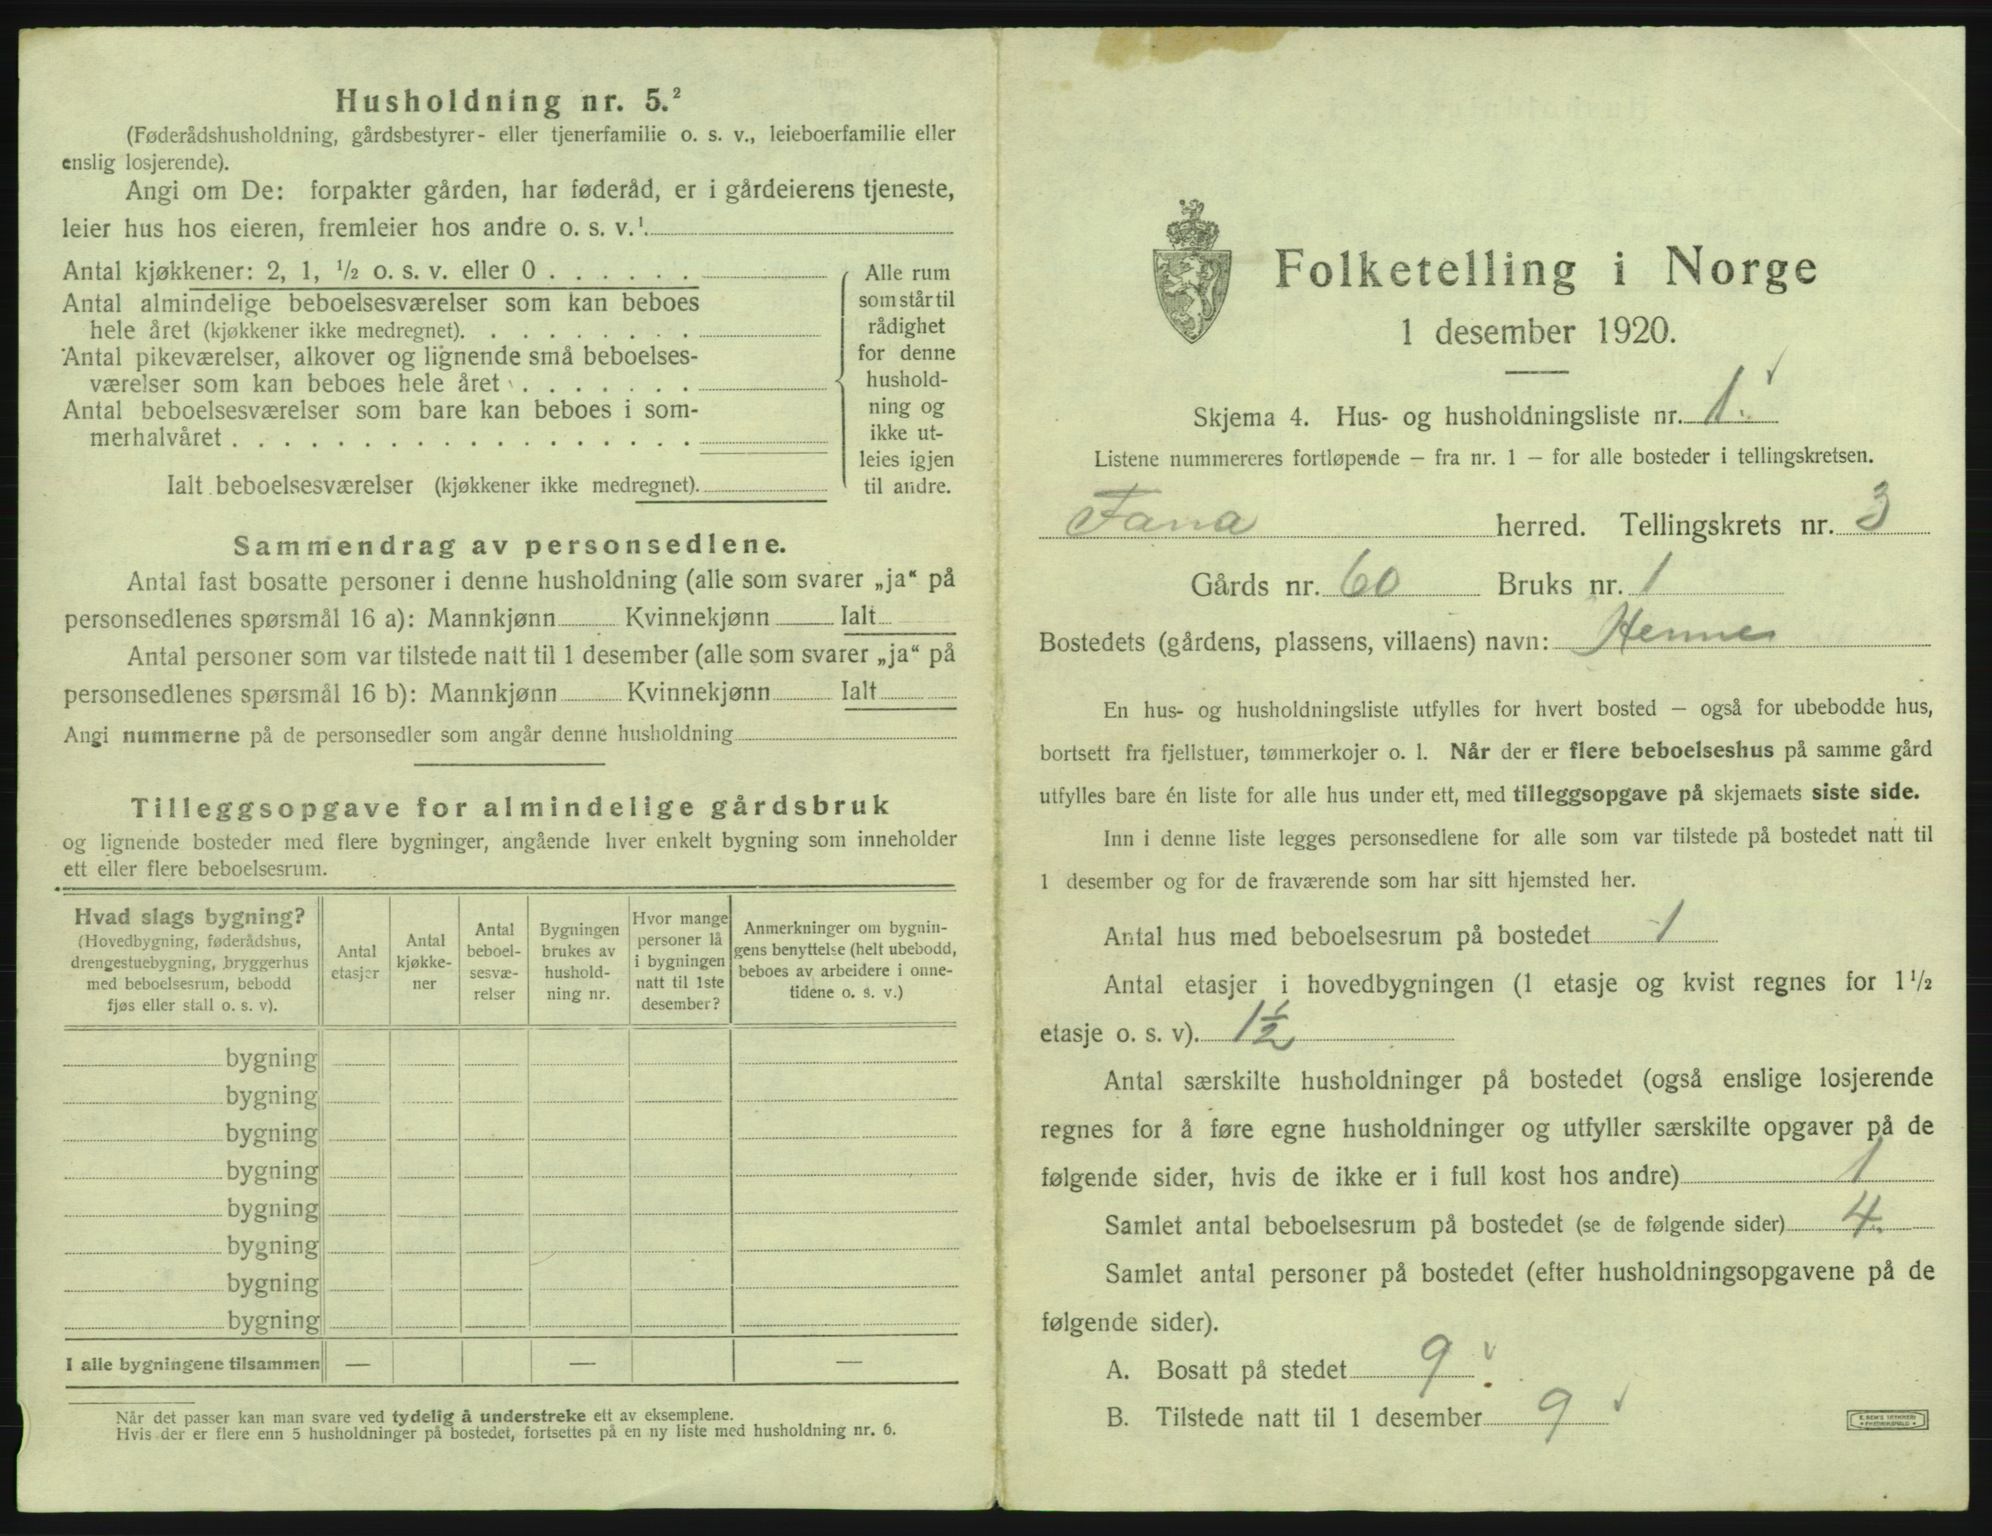 Husholdning nr. 5.²
(Føderådshusholdning, gårdsbestyrer- eller tjenerfamilie o. s. v., leieboerfamilie eller
enslig losjerende).
Angi om De: forpakter gården, har føderåd, er i gårdeierens tjeneste,
leier hus hos eieren, fremleier hos andre o. s. v.¹
Antal kjøkkener: 2, 1, ½ o. s. v. eller 0 . . . . . .
Antal almindelige beboelsesværelser som kan beboes
hele året (kjøkkener ikke medregnet). . . . . . . . .
Antal pikeværelser, alkover og lignende små beboelses-
værelser som kan beboes hele året . . . . . . .
Antal beboelsesværelser som bare kan beboes i som-
merhalvåret . . . . . . . . . . . . . . . . . .
Ialt beboelsesværelser (kjøkkener ikke medregnet).
Alle rum
som står til
rådighet
for denne
hushold-
ning og
ikke ut-
leies igjen
til andre.
Sammendrag av personsedlene.
Antal fast bosatte personer i denne husholdning (alle som svarer „ja“ på
personsedlenes spørsmål 16 a): Mannkjønn Kvinnekjønn Ialt
Antal personer som var tilstede natt til 1 desember (alle som svarer „ja“ på
personsedlenes spørsmål 16 b): Mannkjønn Kvinnekjønn Ialt
Angi nummerne på de personsedler som angår denne husholdning
Tilleggsopgave for almindelige gårdsbruk
og lignende bosteder med flere bygninger, angående hver enkelt bygning som inneholder
ett eller flere beboelsesrum.
Hvad slags bygning?
(Hovedbygning, føderådshus,
drengestuebygning, bryggerhus
med beboelsesrum, bebodd
fjøs eller stall o. s. v).
Antal
etasjer
Antal
kjøkke-
ner
Antal
beboel-
sesvæ-
relser
Bygningen
brukes av
hushold-
ning nr.
Hvor mange
personer lå
i bygningen
natt til 1ste
desember?
Anmerkninger om bygnin-
gens benyttelse (helt ubebodd,
beboes av arbeidere i onne-
tidene o. s. v.)
bygning
bygning
bygning
bygning
bygning
bygning
bygning
bygning
I alle bygningene tilsammen — — —
Når det passer kan man svare ved tydelig å understreke ett av eksemplene.
Hvis der er flere enn 5 husholdninger på bostedet, fortsettes på en ny liste med husholdning nr. 6.
Folketelling i Norge
1 desember 1920.
Skjema 4. Hus- og husholdningsliste nr. 1.
Listene nummereres fortløpende — fra nr. 1 — for alle bosteder i tellingskretsen.
Fana herred. Tellingskrets nr. 3
Gårds nr. 60 Bruks nr. 1
Bostedets (gårdens, plassens, villaens) navn:
En hus- og husholdningsliste utfylles for hvert bosted — også for ubebodde hus,
bortsett fra fjellstuer, tømmerkojer o. l. Når der er flere beboelseshus på samme gård
utfylles bare én liste for alle hus under ett, med tilleggsopgave på skjemaets siste side.
Inn i denne liste legges personsedlene for alle som var tilstede på bostedet natt til
1 desember og for de fraværende som har sitt hjemsted her.
Antal hus med beboelsesrum på bostedet 1
Antal etasjer i hovedbygningen (1 etasje og kvist regnes for 1 ½
etasje o. s. v). 1½
Antal særskilte husholdninger på bostedet (også enslige losjerende
regnes for å føre egne husholdninger og utfyller særskilte opgaver på de
følgende sider, hvis de ikke er i full kost hos andre) 1
Samlet antal beboelsesrum på bostedet (se de følgende sider) 4.
Samlet antal personer på bostedet (efter husholdningsopgavene på de
følgende sider).
A. Bosatt på stedet 9
B. Tilstede natt til 1 desember 9